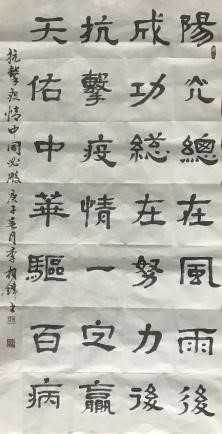 陽光總在風雨後
成功總在努力後
抗擊疫情一定贏
天佑中華驅百病
抗擊疫情中國必勝 庚子春月李相